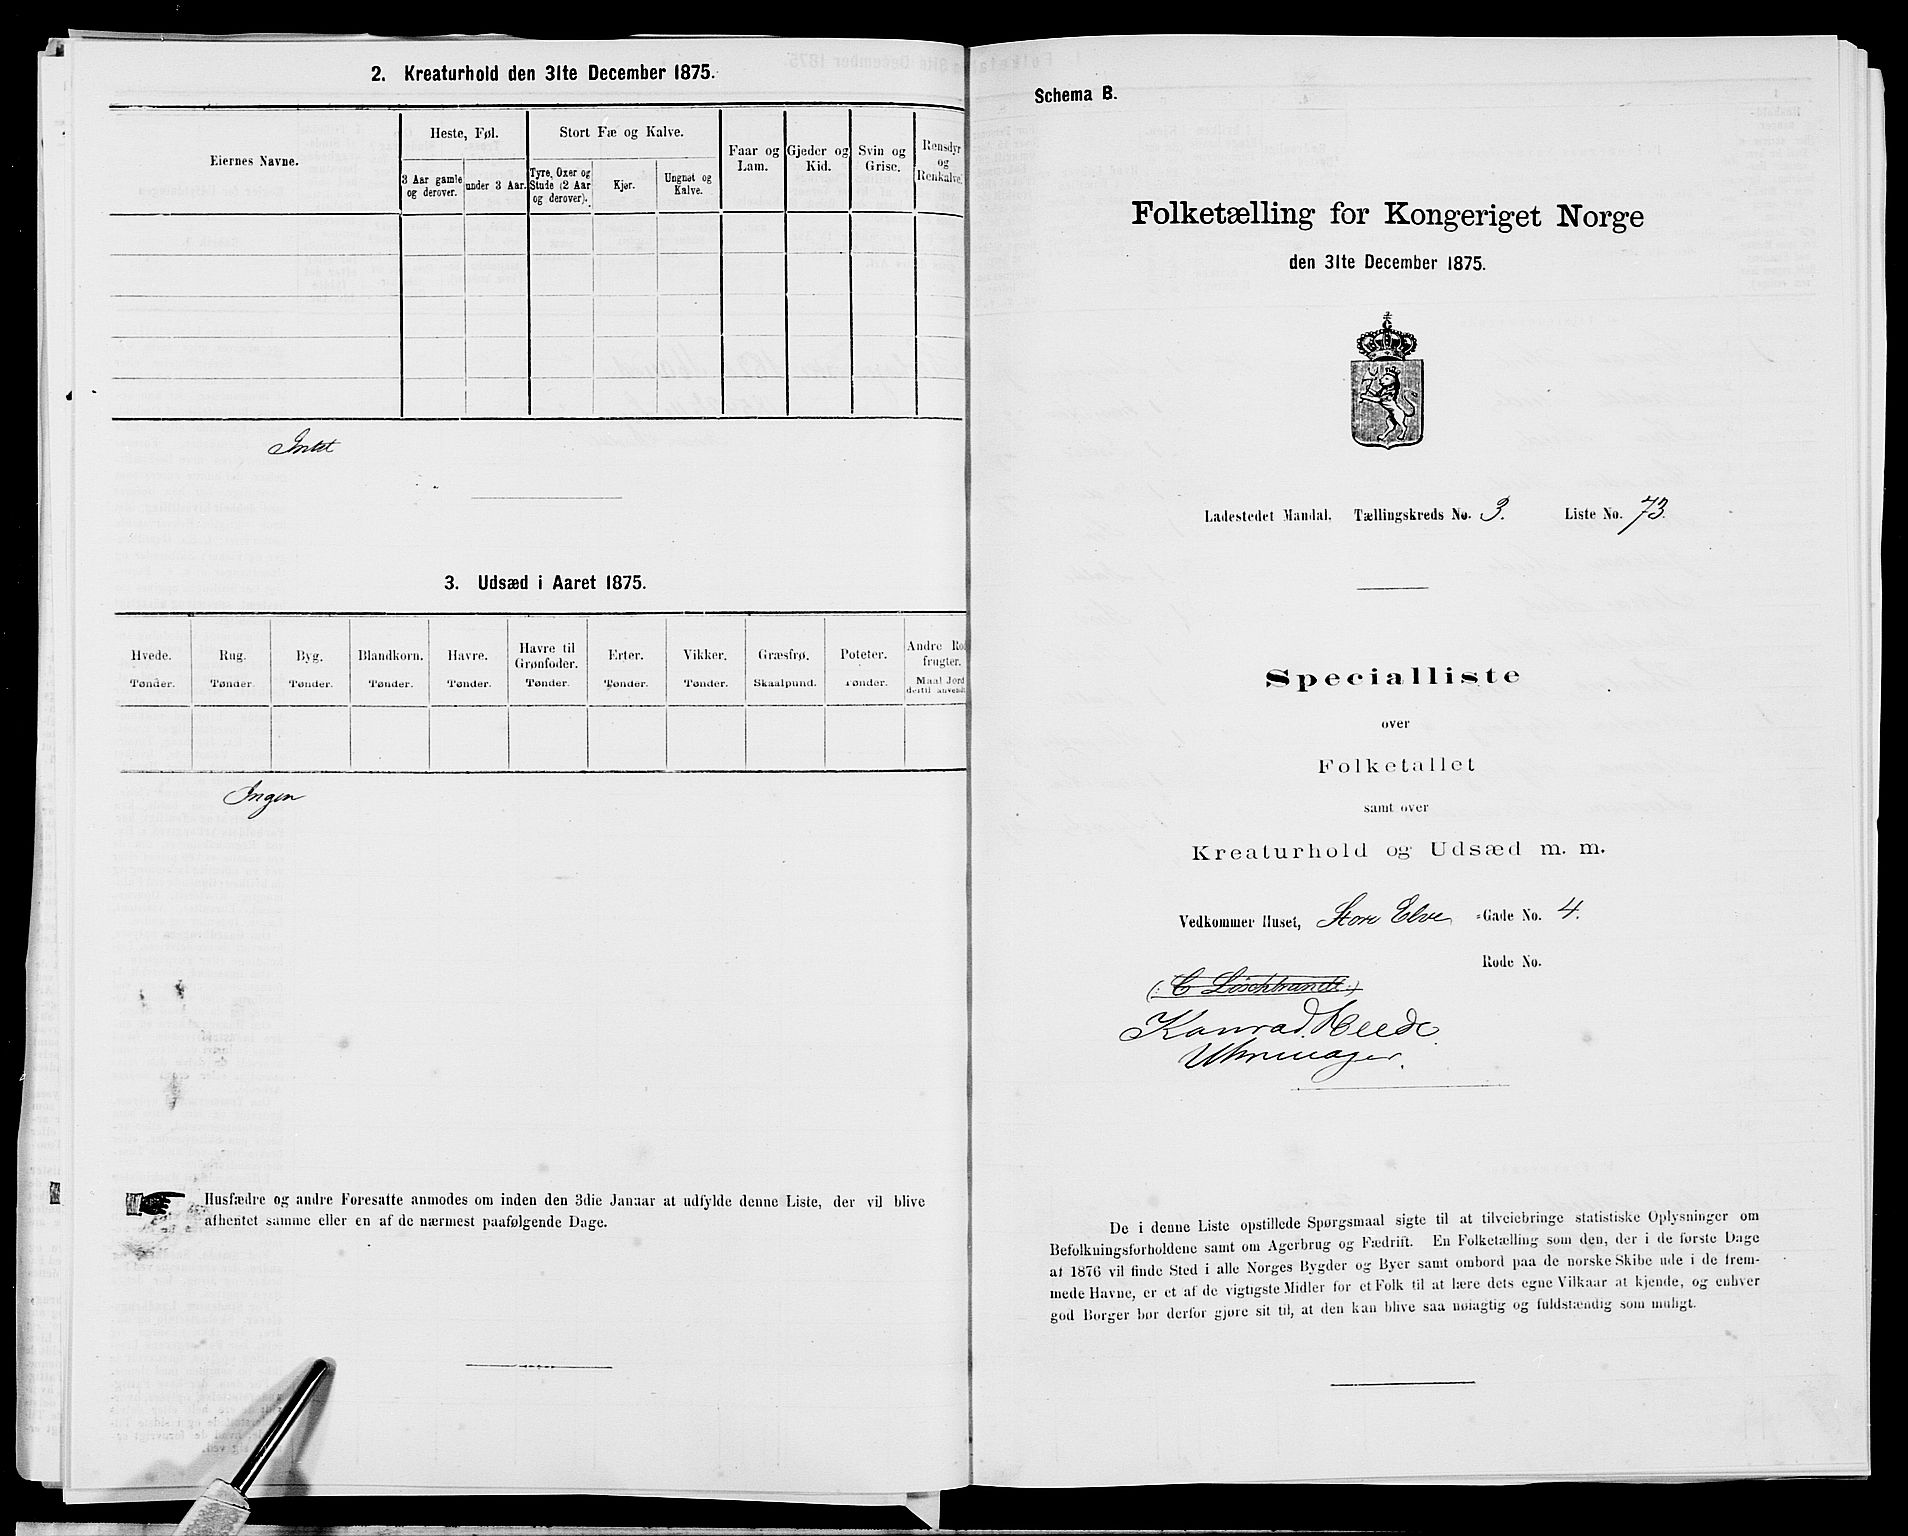 2. Kreaturhold den 31te December 1875.
Eiernes Navne.
Heste, Føl.
Stort Fæ og Kalve.
Faar og Lam.
Gjeder og Kid.
Svin og Grise.
Rensdyr og Renkalve.
3 Aar gamle og derover.
under 3 Aar.
Tyre, Oxer og Stude (2 Aar og derover).
Kjør.
Ungnøt og Kalve.
Intet
3. Udsæd i Aaret 1875.
Hvede.
Rug.
Byg.
Blandkorn.
Havre.
Havre til Grønfoder.
Erter.
Vikker.
Græsfrø.
Poteter.
Andre Rod-
frugter.
Tønder.
Tønder.
Tønder.
Tønder.
Tønder.
Tønder.
Tønder.
Tønder.
Skaalpund.
Tønder.
Maal Jord
dertil anvendt
Ingen
Husfædre og andre Foresatte anmodes om inden den 3die Januar at udfylde denne Liste, der vil blive
afhentet samme eller en af de nærmest paafølgende Dage.
Schema B.
Folketælling for Kongeriget Norge
den 31te December 1875.
Ladestedet Mandal. Tællingskreds No. 3. Liste No. 73.
Specialliste
over
Folketallet
samt over
Kreaturhold og Udsæd m. m.
Vedkommer Huset, Store Elve -Gade No. 4.
Rode No.
Konrad Heede
Uhrmager.
De i denne Liste opstillede Spørgsmaal sigte til at tilveiebringe statistiske Oplysninger om
Befolkningsforholdene samt om Agerbrug og Fædrift. En Folketælling som den, der i de første Dage
af 1876 vil finde Sted i alle Norges Bygder og Byer samt ombord paa de norske Skibe ude i de frem-
mede Havne, er et af de vigtigste Midler for et Folk til at lære dets egne Vilkaar at kjende, og enhver
god Borger bør derfor gjøre sit til, at den kan blive saa nøiagtig og fuldstændig som muligt.